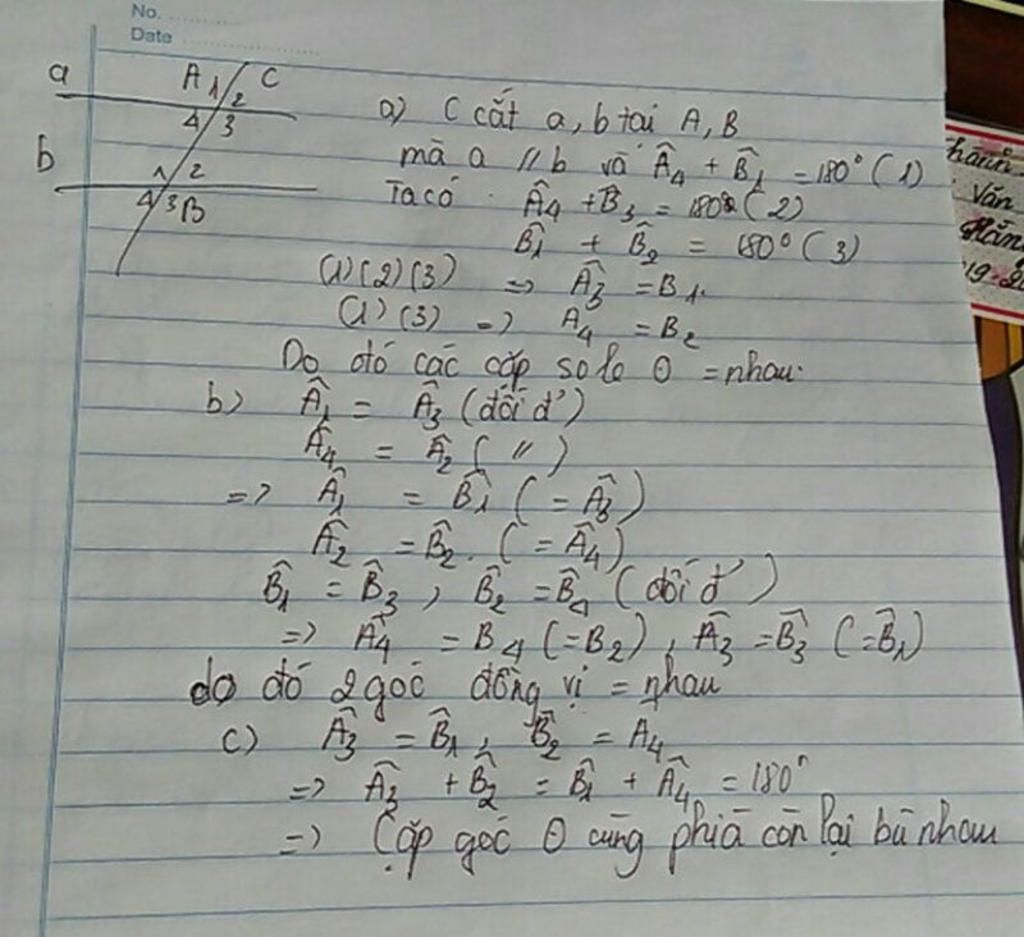 No. ..........
Date ....................
a
A 1 C
2
4 3
b
1 2
4 3 B
a) C cắt a, b tại A, B
mà a // b và Â4 + B̂1 = 180° (1)
Ta có Â4 + B̂3 = 180° (2)
B̂1 + B̂2 = 180° (3)
(1) (2) (3) => Â3 = B1.
(1) (3) => A4 = B2
Do đó các cặp so le θ = nhau.
b) Â1 = Â3 (đối đ')
Â4 = Â2 ( // )
=> Â1 = B̂1 ( = Â3 )
Â2 = B̂2. ( = Â4 )
B̂1 = B̂3 , B̂2 = B̂4 ( đối đ' )
=> Â4 = B4 (= B2) , Â3 = B̂3 (= B̂1)
do đó 2 góc đồng vị = nhau
c) Â3 = B̂1 , B̂2 = A4
=> Â3 + B̂2 = B̂1 + Â4 = 180°
=> Cặp góc θ cùng phía còn lại bù nhau
Văn